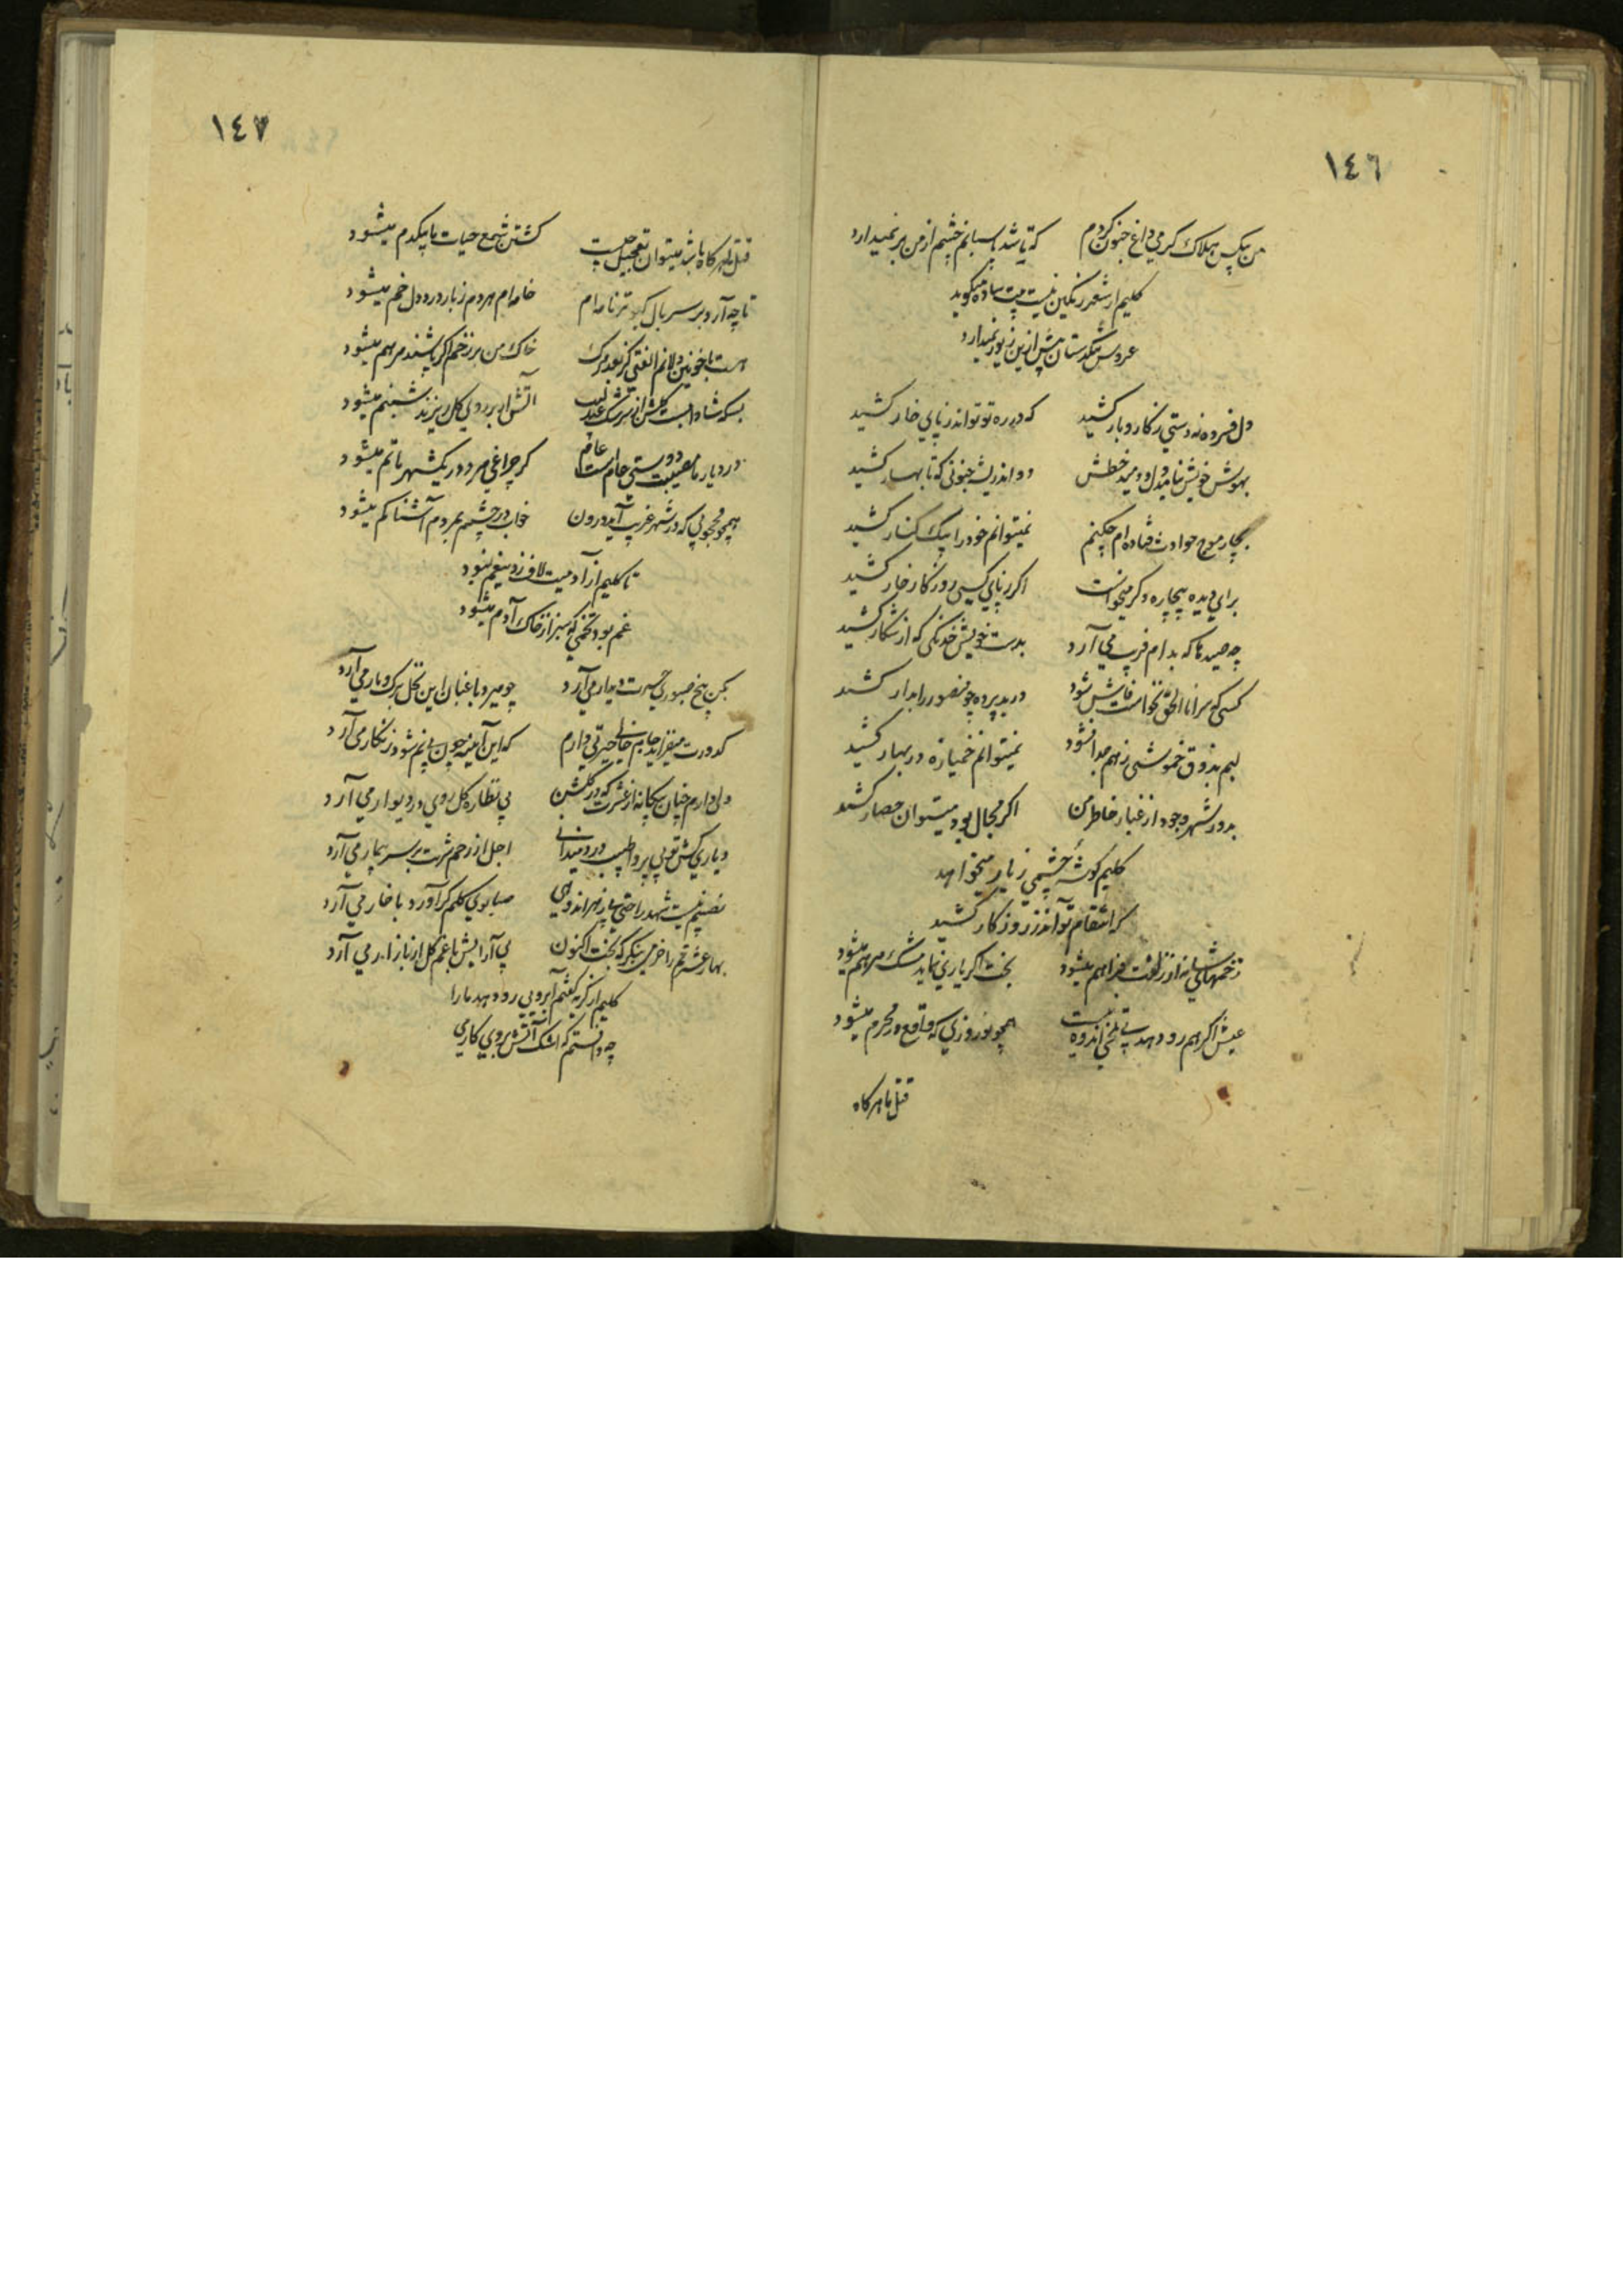 ١٤٦
من بیکس هلاک کرمی داغ جنون کردم که تا شد پاسبانم چشم از من بر نمیدارد
کلیم از شعر رنگین نیست بیت ساده میگوید
عروس تنگدستان بیش ازین زیور نمیدارد
دل فسرده نه دستی ز کار و بار کشید که در ره تو تواند ز پای خار کشید
بهوش خویش نیامد دل و دمید خطش دواندریشه جنونی که تا بهار کشید
بچار موج حوادث فتاده ام چکنم نمیتوانم خود را بیک کنار کشید
برای دیده بیچاره دگر میخواست اگر ز پای کسی روزگار خار کشید
چه صیدها که بدام فریب می آرد بدست خویش خدنگی که از شکار کشید
کسی که سر انا الحق نخواست فاش شود درید پرده چو منصور را بدار کشید
لبم بذوق خموشی ز هم جدا نشود نمیتوانم خمیازه در بهار کشید
بدور شهر وجود از غبار خاطر من اگر مجال بود میتوان حصار کشید
کلیم گوشه چشمی ز یار میخواهد
که انتقام تواند ز روزگار کشید
زخمهای شانه از زلفت فراهم میشود بخت اگر یاری نماید مشک مرهم میشود
عیش اگر هم رو دهد بی تلخی اندوه نیست همچو نوروزی که واقع در محرم میشود
قتل ما هرکاه
١٤٧
قتل ما هرکاه باشد میتوان تعجیل چیست کشتن شمع حیات ما بیکدم میشود
تا چه آرد بر سر بال کبوتر نامه ام خامه ام هر دم ز بار درد دل خم میشود
هست با خونین دلانم الفتی کز بعد مرگ خاک من بر زخم اگر پاشند مرهم میشود
بسکه شاداب است گلشن از سرشک عندلیب آتش ار بر روی گل ریزند شبنم میشود
در دیار ما مصیبت دوستی عام است عام گر چراغی مرد در یک شهر ماتم میشود
همچو محجوبی که در شهر غریب آید درون خواب در چشمم بمردم آشنا کم میشود
تا کلیم از آدمیت لاف زد بیغم نبود
غم بود تخمی که سبز از خاک آدم میشود
بکن بیخ صبوری حسرت دیدار می آرد چو میرد باغبان این نخل برگ و بار می آرد
کدورت میفزاید جام می جای حیرتی دارم که این آیینه چون بی نم شود زنگار می آرد
دلی دارم چنان بیگانه از عشرت که در گلشن پی نظاره گل روی در دیوار می آرد
دیاری کش تویی پروا طبیب درد میدانی اجل از رحم شربت بر سر بیمار می آرد
نصیبم نیست شهد راحتی بی زهر اندوهی صبا بوی گلم گر آورد با خار می آرد
بها عشرتم را خرمی بنگر که بخت اکنون پی آرایش باغم گل از بازار می آرد
کلیم از گریه گفتم آبرویی رو دهد ما را
چه دانستم که اشک آتش بروی کار می